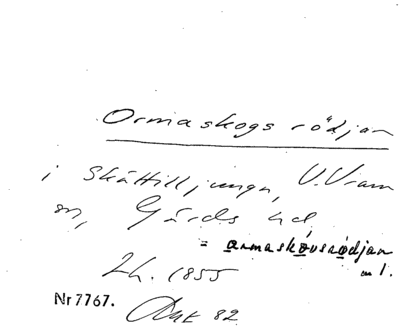 Ormaskogsrödjan
i Skättilljunga, V. Vram
sn, Gärds hd
= armaskovsrödjan
m l.
Lh. 1855
Nr 7767. Ant 82